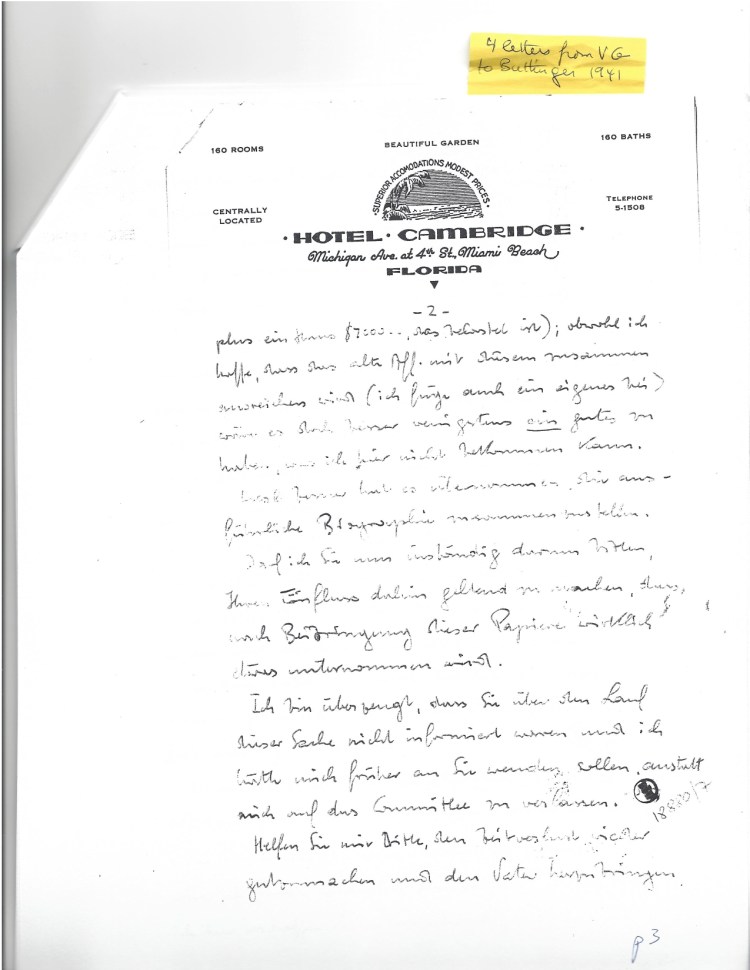 4 letters from VG
to Buttinger 1941
160 ROOMS
BEAUTIFUL GARDEN
160 BATHS
SUPERIOR ACCOMODATIONS MODEST PRICES
CENTRALLY
LOCATED
TELEPHONE
5-1508
HOTEL · CAMBRIDGE
Michigan Ave. at 4th St., Miami Beach
FLORIDA
- 2 -
plus ein Haus $7000.-, das belastet ist); obwohl ich
hoffe, dass das alte Aff. mit diesem zusammen
ausreichen wird (ich füge auch ein eigenes bei)
wäre es doch besser wenigstens ein gutes zu
haben, was ich hier nicht bekommen kann.
hat es übernommen, die aus-
führliche Biographie zusammenzustellen.
Darf ich Sie nun inständig darum bitten,
Ihren Einfluss dahin geltend zu machen, dass,
nach Beibringung dieser Papiere wirklich
etwas unternommen wird.
Ich bin überzeugt, dass Sie über den Lauf
dieser Sache nicht informiert waren und ich
hätte mich früher an Sie wenden sollen, anstatt
mich auf das Committee zu verlassen.
18820/7
Helfen Sie mir bitte, den Zeitverlust wieder
gutzumachen und den Vater herzubringen
p 3